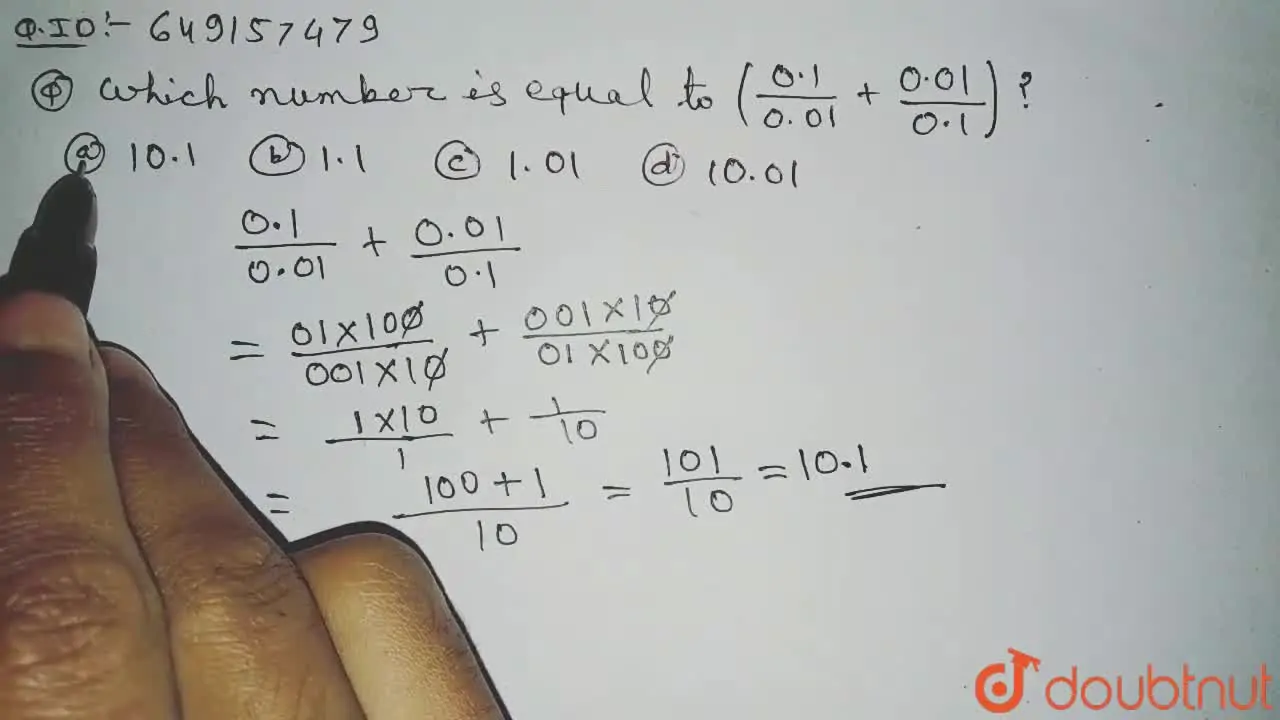 Q.ID:- 649157479
Q which number is equal to (0.1/0.01 + 0.01/0.1)?
a 10.1 b 1.1 c 1.01 d 10.01
0.1/0.01 + 0.01/0.1
= 01×100/001×10 + 001×10/01×100
= 1×10/1 + 1/10
= 100+1/10 = 101/10 = 10.1
doubtnut